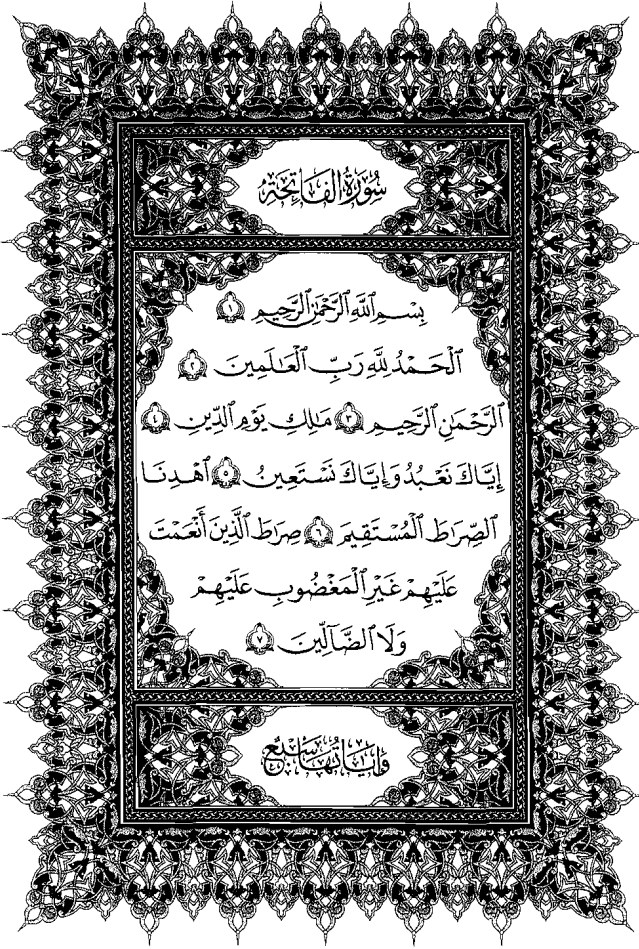 سُورَةُ الفَاتِحَةِ
بِسْمِ ٱللَّهِ ٱلرَّحْمَٰنِ ٱلرَّحِيمِ ١
ٱلْحَمْدُ لِلَّهِ رَبِّ ٱلْعَٰلَمِينَ ٢
ٱلرَّحْمَٰنِ ٱلرَّحِيمِ ٣ مَٰلِكِ يَوْمِ ٱلدِّينِ ٤
إِيَّاكَ نَعْبُدُ وَإِيَّاكَ نَسْتَعِينُ ٥ ٱهْدِنَا
ٱلصِّرَٰطَ ٱلْمُسْتَقِيمَ ٦ صِرَٰطَ ٱلَّذِينَ أَنْعَمْتَ
عَلَيْهِمْ غَيْرِ ٱلْمَغْضُوبِ عَلَيْهِمْ
وَلَا ٱلضَّآلِّينَ ٧
وَآيَاتُهَا سَبْعٌ